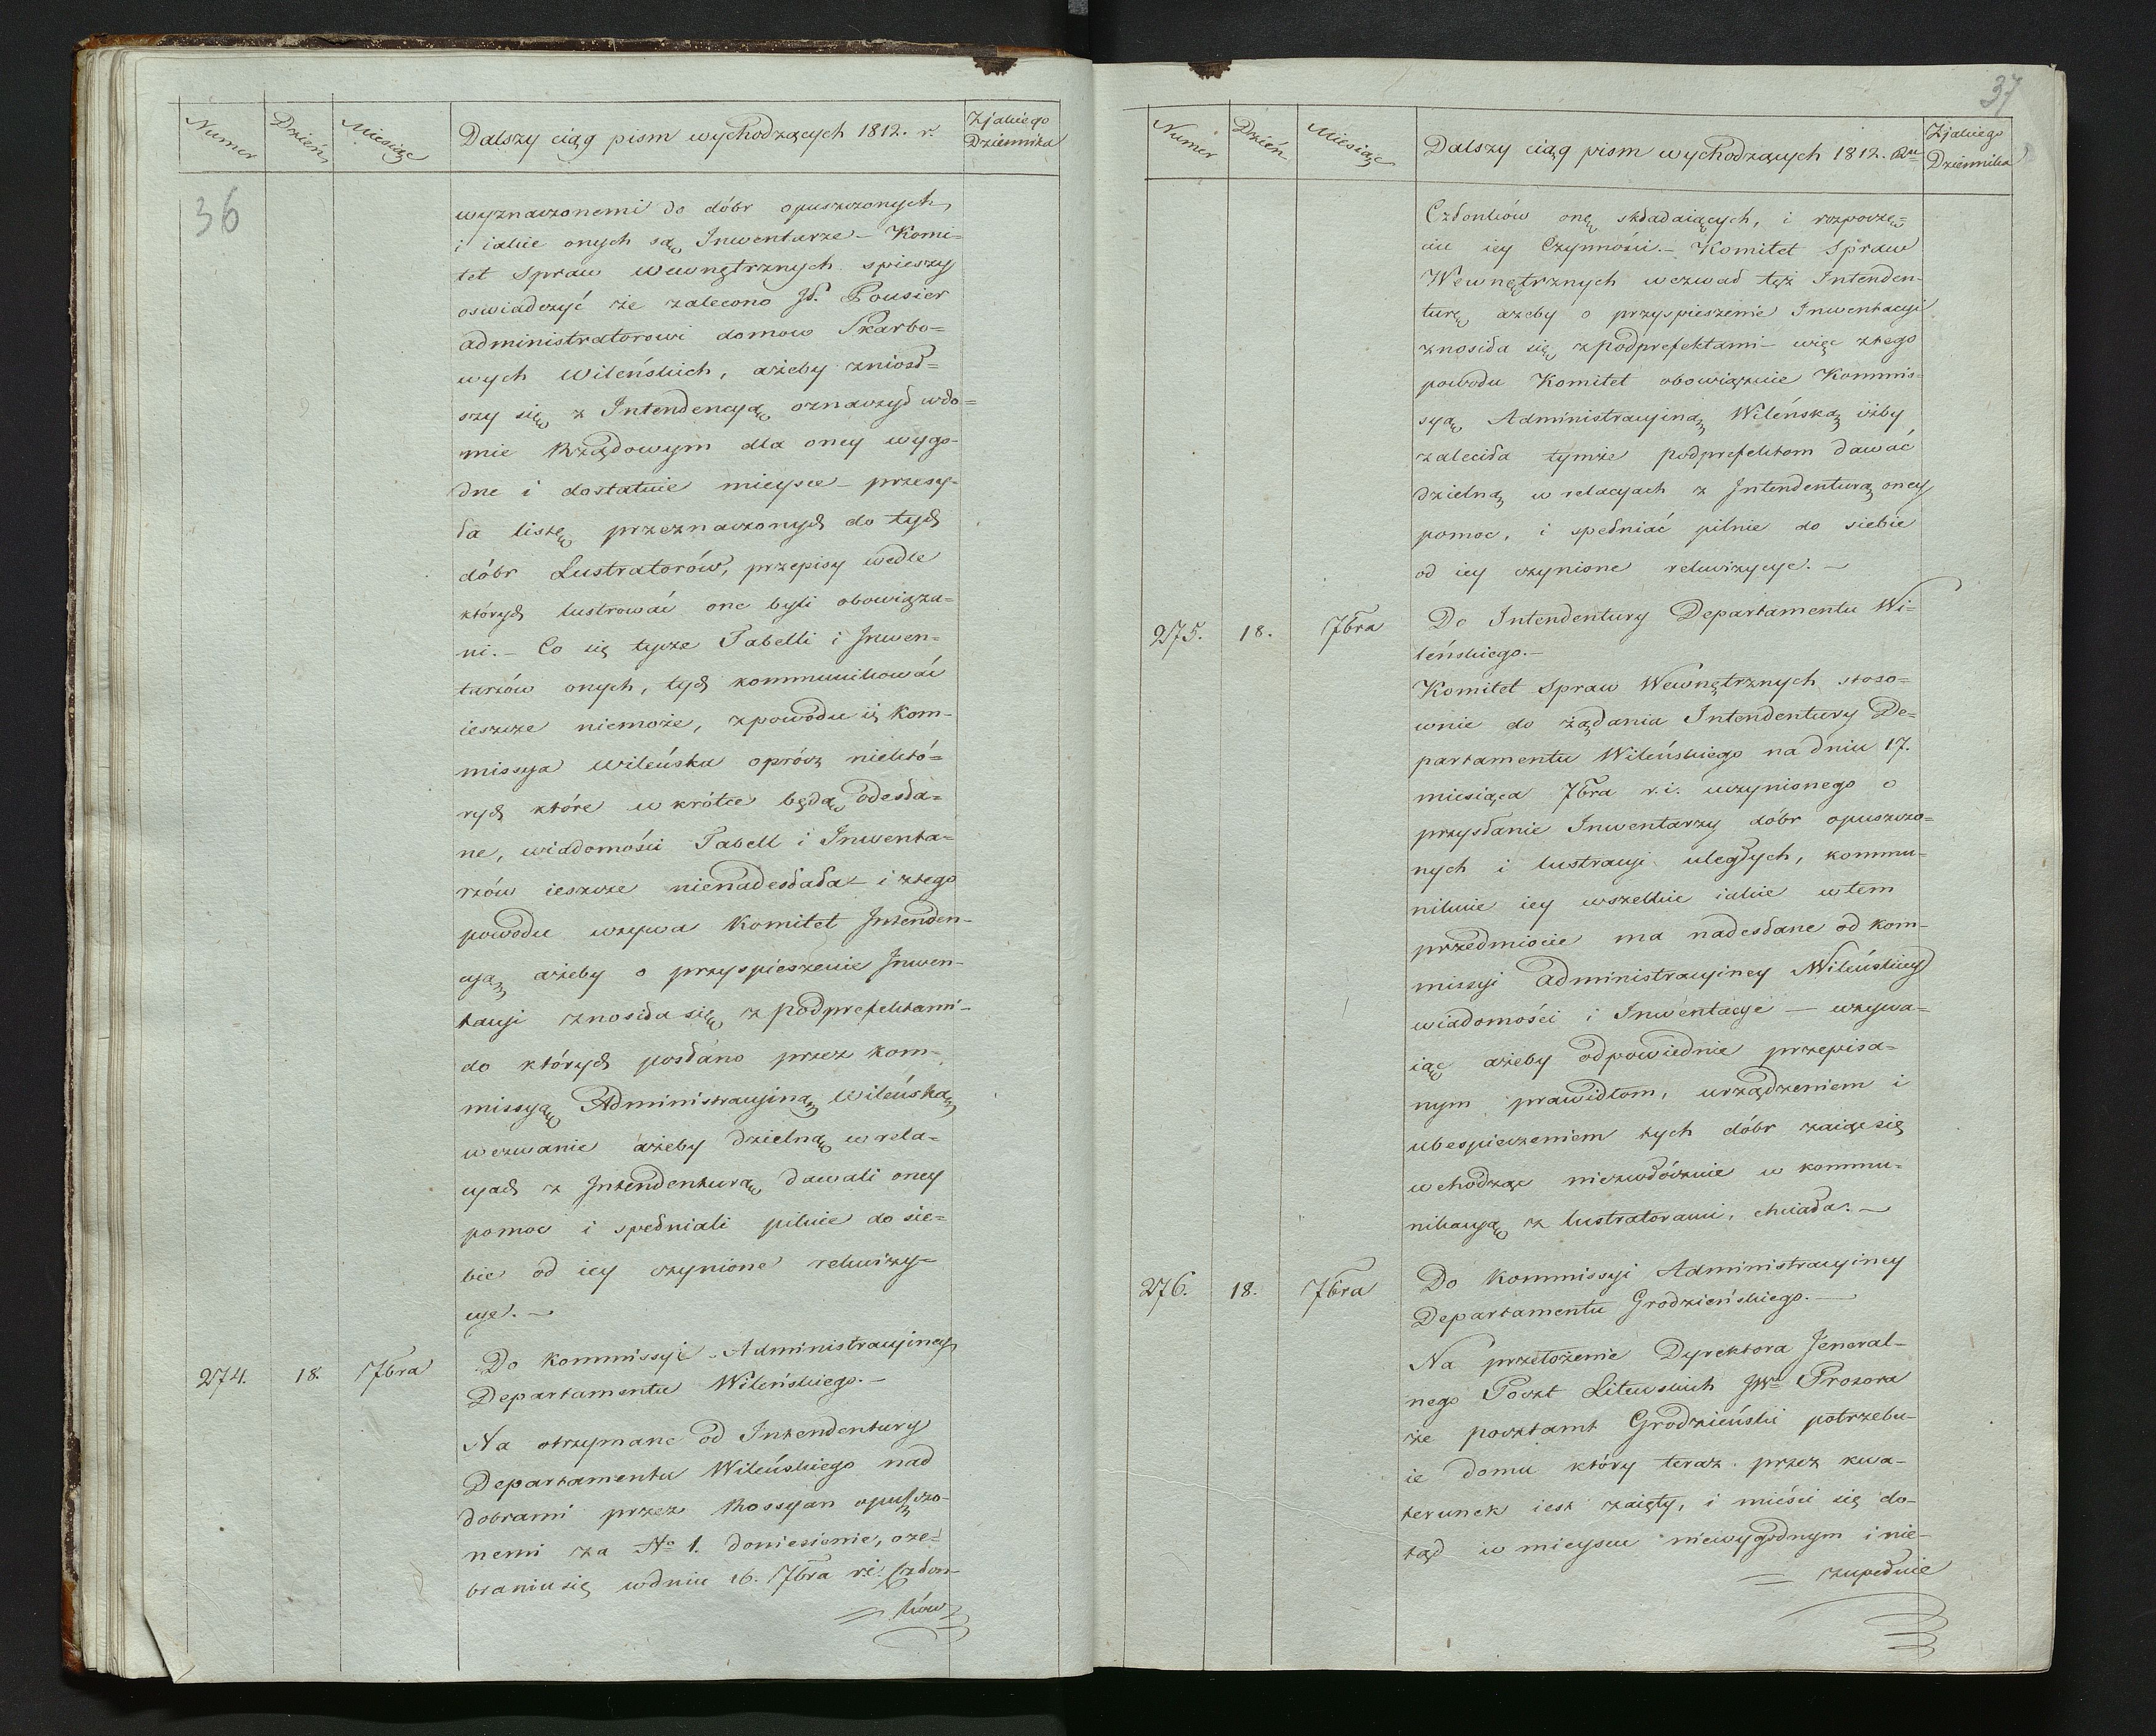 Numer Dzień Miesiąc Dalszy ciąg pism wychodzących 1812. r. Z jakiego Dziennika
36
wyznaczonemi do dóbr opuszczonych,
i iakie onych są Inwentarze – Komi=
tet Spraw Wewnętrznych spieszy
oświadczyć że zalecono JP. Pousier
administratorowi domow Skarbo=
wych Wileńskich, ażeby zniosł=
szy się z Intendencyą oznaczył w do=
mie Rządowym dla oney wygo=
dne i dostatnie mieysce – przesy=
ła listę przeznaczonych do tych
dóbr Lustratorów, przepisy wedle
których lustrować one byli obowiąza=
ni. – Co się tycze Tabelli i Inwen=
tarzów onych, tych kommunikować
ieszcze niemoże, z powodu iż Kom=
missya Wileńska oprócz niektó=
rych które w krótce będą odesła=
ne, wiadomości Tabell i Inwenta=
rzów ieszcze nienadesłała – i z tego
powodu wzywa Komitet Intenden=
cyą ażeby o przyspieszenie Inwen=
tacyi znosiła się z podprefektami –
do których posłano przez Kom=
missyą Administracyiną Wileńską
wezwanie ażeby dzielną w rela=
cyach z Intendenturą dawali oney
pomoc i spełniali pilnie do sie=
bie od iey czynione rekwizy=
cye. –
274. 18. 7bra Do Kommissyi Administracyiney
Departamentu Wileńskiego. –
Na otrzymane od Intendentury
Departamentu Wileńskiego nad
dobrami przez Rossyan opuszczo=
nemi za No 1. doniesienie, o ze=
braniu się w dniu 16. 7bra r.i. Człon=
= ków
37
Numer Dzień Miesiąc Dalszy ciąg pism wychodzących 1812. Ru Z jakiego Dziennika
Członków onę składaiących, i rozpoczę=
ciu iey Czynności. – Komitet Spraw
Wewnętrznych wezwał tęż Intenden=
turę ażeby o przyspieszenie Inwentacyi
znosiła się z podprefektami – więc z tego
powodu Komitet obowiązuie Kommis=
syą Administracyiną Wileńską iżby
zaleciła tymże podprefektom dawać
dzielną w relacyach z Intendenturą oney
pomoc, i spełniać pilnie do siebie
od iey czynione rekwizycye. –
275. 18. 7bra Do Intendentury Departamentu Wi=
leńskiego. –
Komitet Spraw Wewnętrznych stoso=
wnie do żądania Intendentury De=
partamentu Wileńskiego na dniu 17.
miesiąca 7bra r.i. uczynionego o
przysłanie Inwentarzy dóbr opuszczo=
nych i lustracyi uległych, kommu=
nikuie iey wszelkie iakie w tem
przedmiocie ma nadesłane od Kom=
missyi Administracyiney Wileńskiey
wiadomości i Inwentacye – wzywa=
iąc ażeby odpowiednie przepisa=
nym prawidłom, urządzeniem i
ubespieczeniem tych dóbr zaiąć się
wchodząc niezwłócznie w kommu=
nikacyą z lustratorami, chciała. –
276. 18. 7bra Do Kommissyi Administracyiney
Departamentu Grodzieńskiego. –
Na przełożenie Dyrektora Jeneral=
nego Poczt Litewskich JW Prozora
że pocztamt Grodzieński potrzebu=
ie domu który teraz przez kwa=
terunek iest zaięty, i mieści się do=
tąd w mieyscu niewygodnym i nie=
= zupełnie